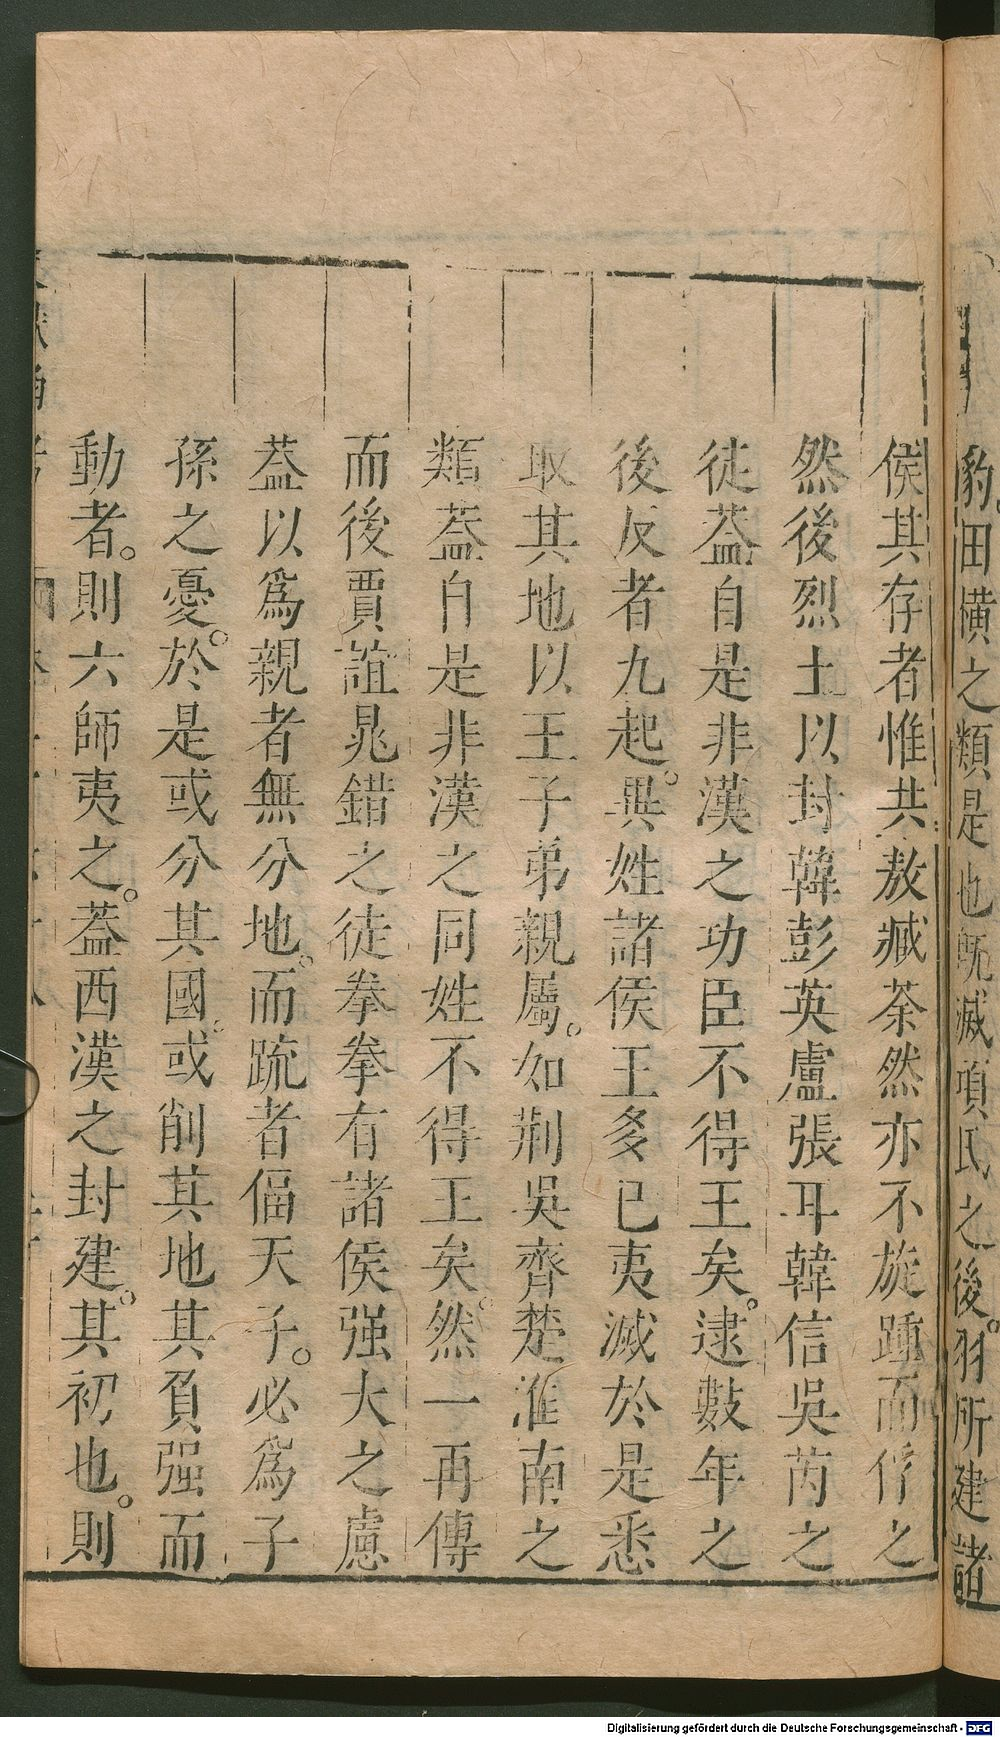 豹。田橫之類是也既滅項氏之後。羽所建諸
侯其存者惟共敖臧荼然亦不旋踵而俘之
然後烈土以封韓彭英盧張耳韓信吳芮之
徒葢自是非漢之功臣不得王矣。逮數年之
後反者九起。異姓諸侯王多已夷滅於是悉
取其地以王子弟親屬。如荆吳齊楚淮南之
類葢自是非漢之同姓不得王矣。然一再傳
而後賈誼晁錯之徒拳拳有諸侯强大之慮
葢以爲親者無分地。而疏者偪天子。必爲子
孫之憂。於是或分其國。或削其地其負强而
動者。則六師夷之。葢西漢之封建。其初也。則
Digitalisierung gefördert durch die Deutsche Forschungsgemeinschaft - DFG